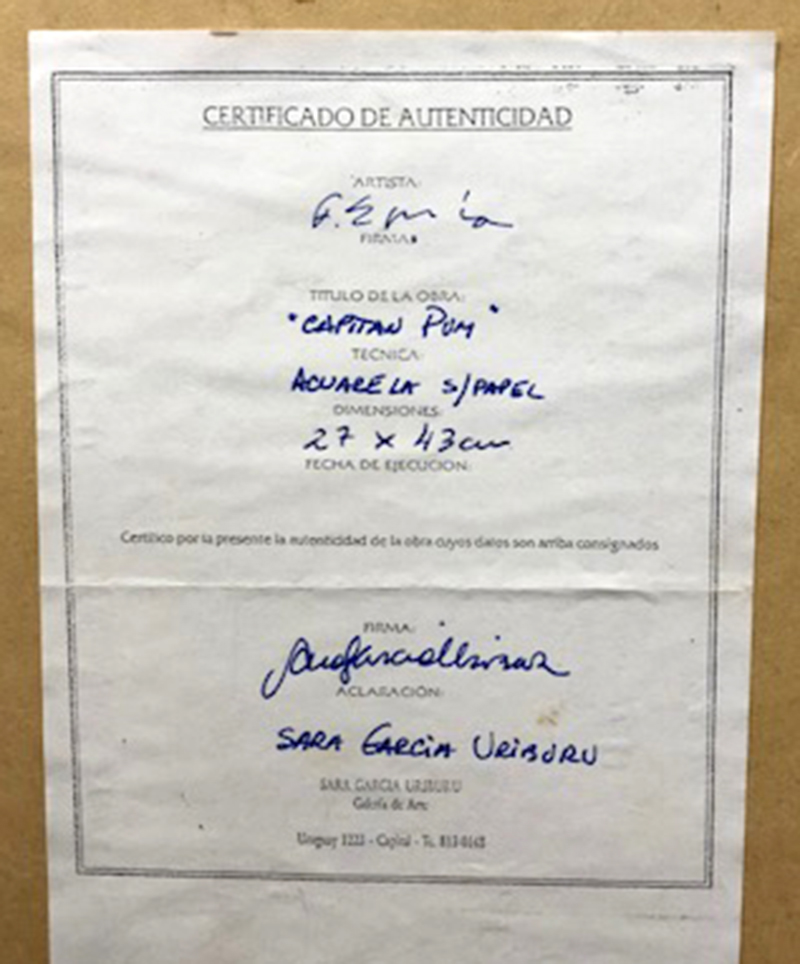 CERTIFICADO DE AUTENTICIDAD
ARTISTA:
FIRMA:
TITULO DE LA OBRA:
"CAPITAN PUM"
TECNICA:
ACUARELA S/PAPEL
DIMENSIONES:
27 x 43 cm
FECHA DE EJECUCION:
Certifico por la presente la autenticidad de la obra cuyos datos son arriba consignados
FIRMA:
ACLARACIÓN:
SARA GARCIA URIBURU
SARA GARCIA URIBURU
Galería de Arte
Uruguay 1223 - Capital - Te.